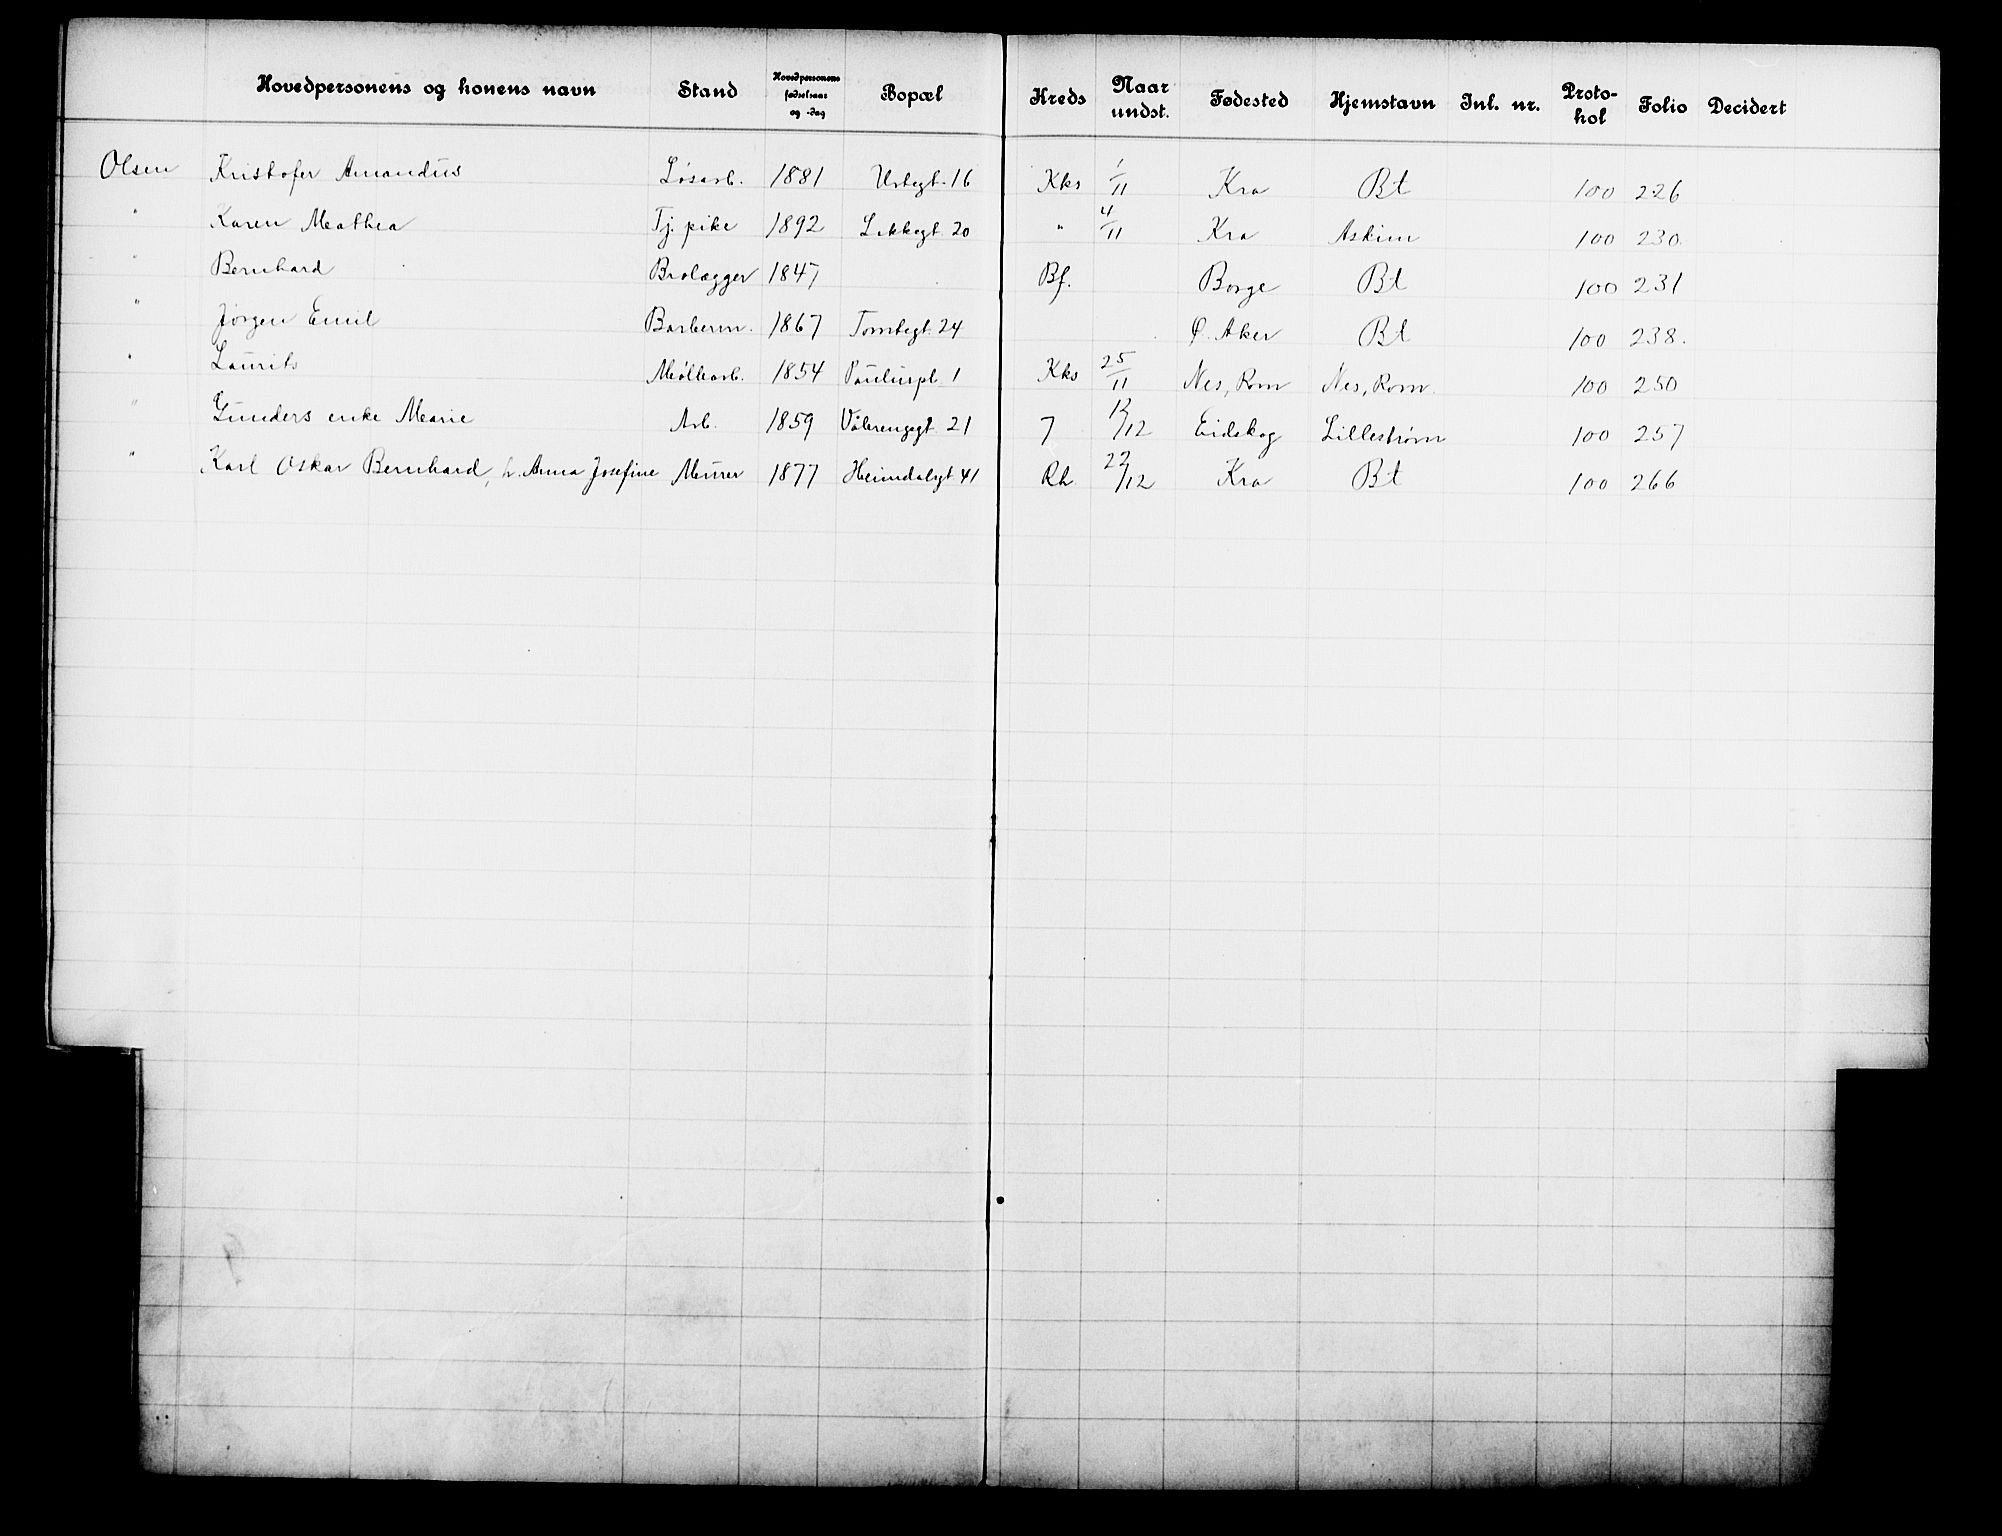 Hovedpersonens og konens navn Stand Hovedpersonens fødselsaar og -dag Bopæl Kreds Naar undst. Fødested Hjemstavn Inl. nr. Protokol Folio Decidert
Olsen Kristofer Amandus Løsarb. 1881 Urtegt. 16 Kks 1/11 Kra Bt 100 226
" Karen Mathea Tj. pike 1892 Lakkegt. 20 " 4/11 Kra Askim 100 230.
" Bernhard Brolægger 1847 Bf. Borge Bt 100 231
" Jørgen Emil Barberm. 1867 Tomtegt. 24 Ø. Aker Bt 100 238.
" Laurits Møllearb. 1854 Pauluspl. 1 Kks 25/11 Nes, Rom Nes, Rom. 100 250
" Gunders enke Marie Arb. 1859 Vålerengegt. 21 7 /12 Eidskog Lillestrøm 100 257
" Karl Oskar Bernhard, h. Anna Josefine Murer 1877 Heimdalsgt. 41 Rh 22/12 Kra Bt 100 266